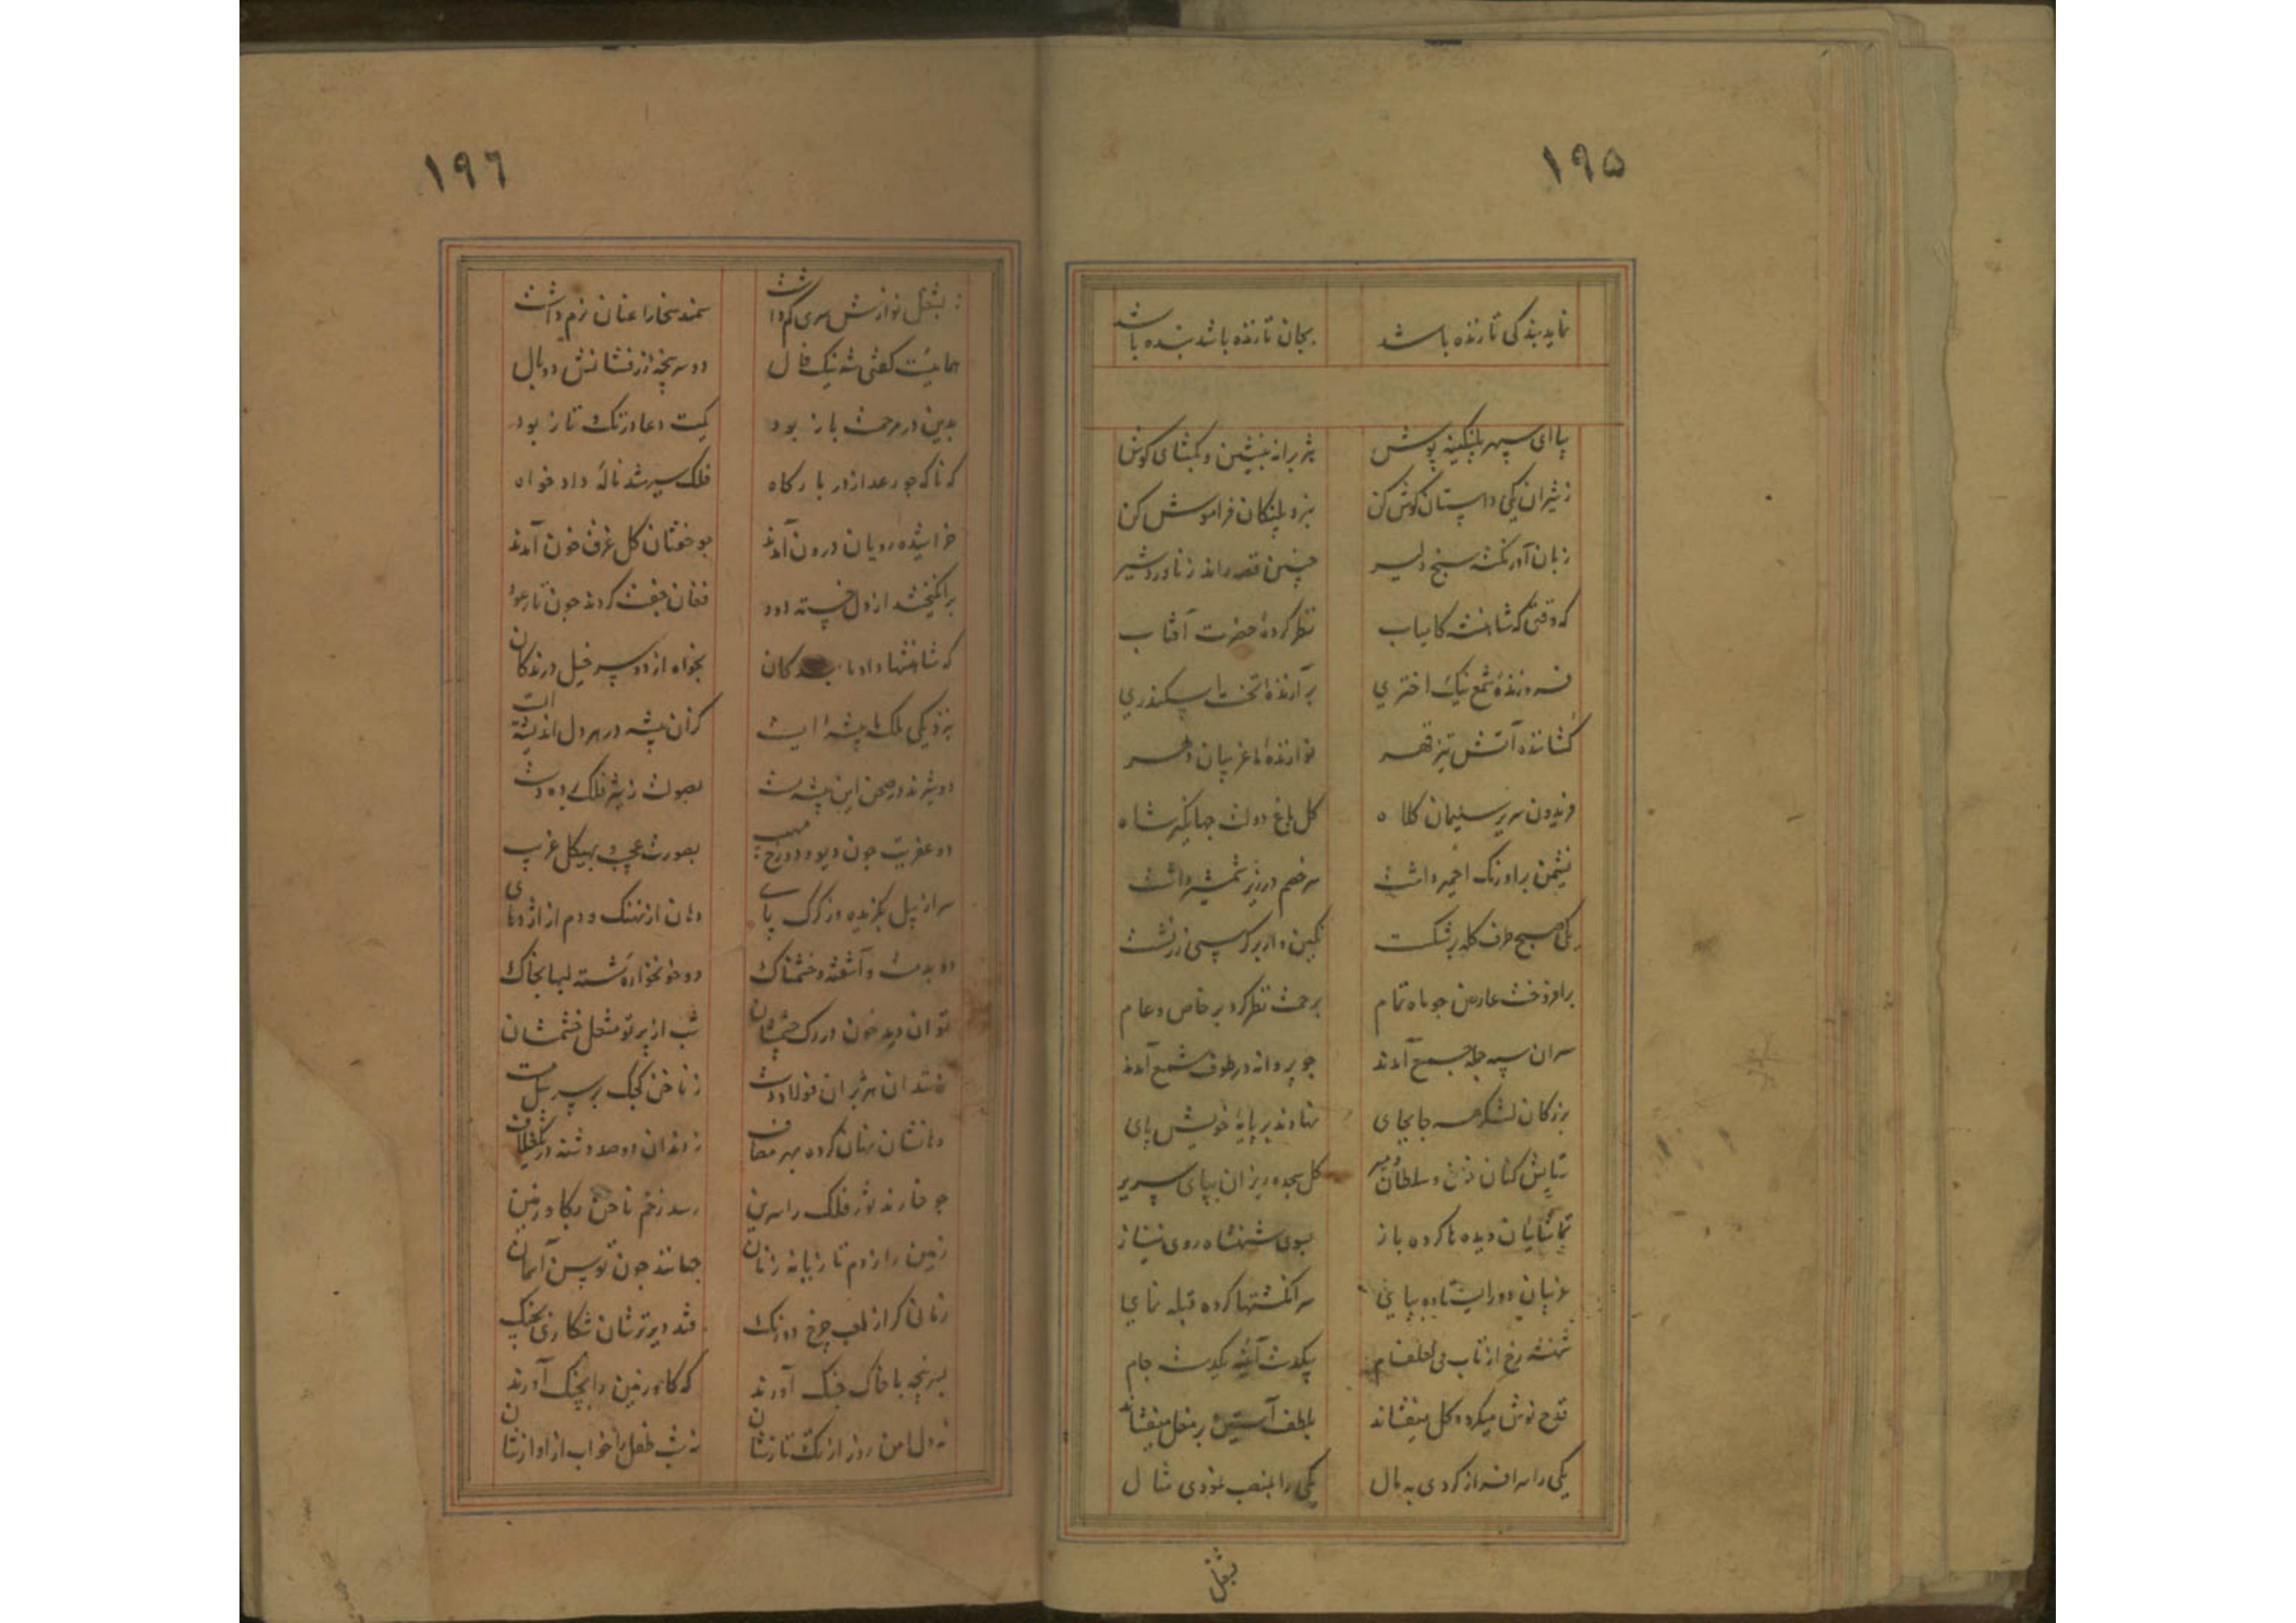 ۱۹۵
نماید بندکی تا زنده باشد بجان تا زنده باشد بنده باشد
بیا ای سپهر پلنکینه پوش بنشین و بکشای کوش
ز شیران یکی داستان کوش کن نبرد پلنکان فراموش کن
زبان آور نکته سنج دلیر چنین قصه راند ز ناورد شیر
که وقتی که شاهنشه کامیاب نظر کردهٔ حضرت آفتاب
فروزندهٔ شمع نیک اختری برآرندهٔ تخت اسکندری
نشانندهٔ آتش تیز قهر نوازندهٔ غریبان دهر
فریدون سریر سلیمان کلاه کل باغ دولت جهانکیر شاه
نشیمن بر اورنک اجمیر داشت سر خصم در زیر شمشیر داشت
یکی صبح طرف کله برشکست نکین وار بر کرسی زر نشست
برافروخت عارض چو ماه تمام برحمت نظر کرد بر خاص و عام
سران سپه جمله جمع آمدند چو پروانه در طوف شمع آمدند
بزرکان لشکر همه جابجای نهادند بر پایهٔ خویش پای
ستایش کنان و سلطان و میر کل سجده ریزان بپای سریر
تماشائیان دیده ها کرده باز بسوی شهنشاه روی نیاز
غریبان دور ایستاده بپای سر انکشتها کرده قبله نمای
شهنشه رخ از تاب می لعلفام بیکدست آئینه یکدست جام
قدح نوش میکرد و کل میفشاند بلطف آستین بر میفشاند
یکی را سرافراز کردی به مال یکی را بمنصب نمودی مثال
بشغل
۱۹۶
بشغل نوازش سری کرم داشت سمند سخا را عنان نرم داشت
همائیست کفتی شه نیک فال دو سرپنجهٔ زرفشانش دو بال
بدین در مرحمت باز بود کمیت دعا در تک و تاز بود
که ناکه چو رعد از در بارکاه فلک سیر شد نالهٔ دادخواه
خراشیده رویان درون آمدند چو خوشان کل غرق خون آمدند
برانکیختند از دل خسته دود فغان جفت کردند چون تار عود
که شاهنشها داد ما بندکان بخواه از دو سر خیل درندکان
بنزدیکی ملک ما بیشه ایست کزان بیشه در هر دل اندیشه ایست
دو شیرند در صحن این بیشه مست بصولت ز شیر فلک برده دست
دو عفریت چون دیو دوزخ مهیب بصورت عجیب و بهیکل غریب
سر از پیل بکزیده وز کرک پای دهان از نهنک و دم از اژدهای
دو بدمست و آشفته و خشمناک دو خونخواره شسته لبها بخاک
توان دید خون در رک جسمشان شب از پرتو مشعل خشمشان
نهند آن هژبران فولاد دست ز ناخن کجک بر سر پیل مست
دهانشان نهان کرده بهر مصاف ز دندان دو صد دشنه در یک غلاف
چو خارند ثور فلک را سرین رسد زخم ناخن بکاو زمین
زمین را ز دم تازیانه زنان جهانند چون توسن آسمان
زمانی کر از لعب چرخ دورنک فتد دیرتر شان شکاری بچنک
بسرپنجه با خاک جنک آورند که کاو زمین را بچنک آورند
نه دل امن روز از تک و تازشان نه شب طفل را خواب از آوازشان